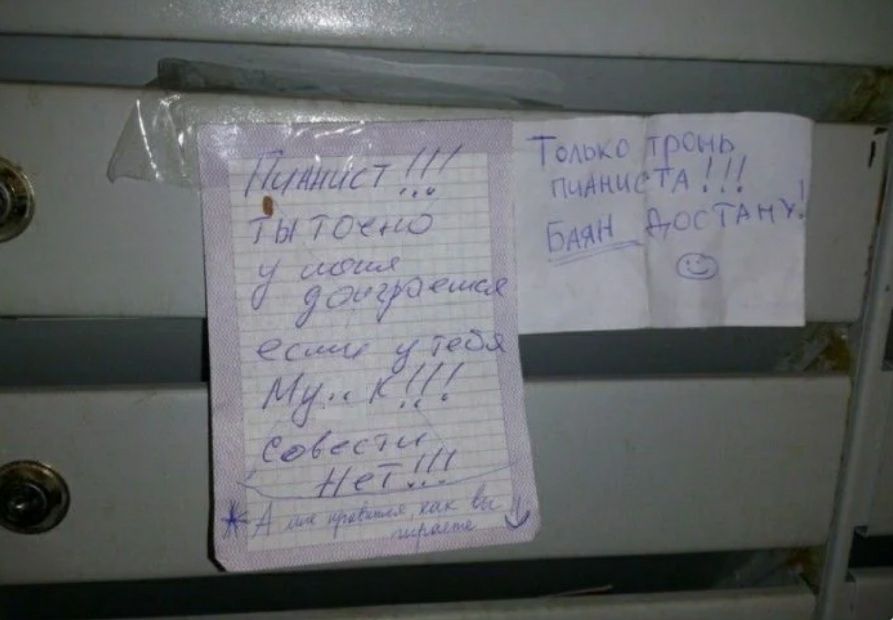 Пианист!!!
ты точно
у меня
доиграешся
если у тебя
Му..к!!!
совести
Нет!!!
А мне нравится, как вы
играете
Только тронь
пианиста!!!
Баян достану!